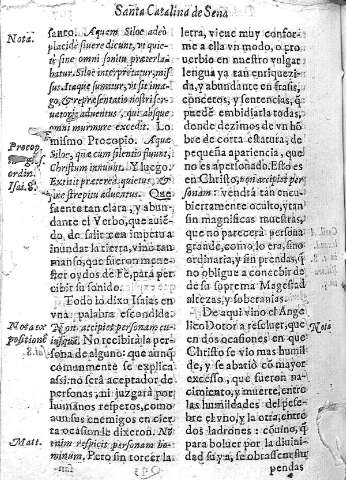 Santa Catalina de Sena
Nota.
santo. Aquem Siloe adeo
placidè fluere dicunt, vt quie-
ti sine omni sonitu præterla-
batur. Siloe interpretatur, mis-
sus. Itaque sumitur, vt sit ima-
go, & repræsentatio nostri ser-
uatoris aduentus, qui absque
omni murmure excedit. Lo
mismo Procopio. Aquæ
Siloe, quæ cum silentio fluunt,
Christum innuunt. Y luego:
Extitit præterea quietus, &
sine strepitu aduentus. Que
fuente tan clara, y abun-
dante el Verbo, que auiē-
do, de salir cō a impetu a
inundar la tierra, vino tan
manso, que fueron mene-
ster oydos de Fè, para per-
cibir su sonido.
Procop.
ordin.
Isai. 8.
Todo lo dixo Isaias en
vna palabra escondida:
Non accipiet personam cu-
iusquã. No recibirà la per-
sona de alguno: que aunq̃
comunmente se explica
assi: no serà aceptador de
personas, ni juzgarà por
humanos respetos, como
aun sus enemigos en cier-
ta ocasion le dixeron. No
enim respicis personam ho-
minum, Pero sin torcer la
Matt.
letra, viene muy confor-
me a ella vn modo, o pro-
uerbio en nuestro vulgar
lengua ya tan enriquezi-
da, y abundante en frasis,
concetos, y sentencias, q̃
puede embidiarla todas,
donde dezimos de vn hō
bre de corta estatura, de
pequeña apariencia, que
no es apersonado. Esto es
en Christo, non accipiet per
sonam: vendrà tan encu-
biertamente oculto, y tan
sin magnificas muestras,
que no parecerà persona
grande, como lo era, sino
ordinaria, y sin prendas, q̃
no obligue a concebir de
de su suprema Magestad
altezas, y soberanias.
De aqui vino el Ange
lico Dotor a resoluer, que
en dos ocasiones en que
Christo se vio mas humil
de, y se abatiò cō mayor
excesso, que fueron na-
cimiento, y muerte, entre
las humildades del pese-
bre el vno, y la otra, entre
dos ladrones: cōuino, q̃
para boluer por la diuini
dad suya, se obrassen estu
pendas
Nota